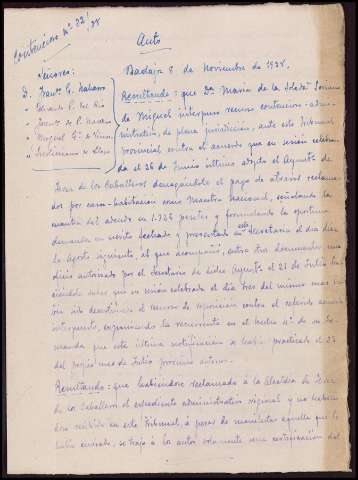 Contencioso nº 22/38
Auto
Señores:
D. Franco G. Naharro
" Eduardo P. del Rio
" Jacinto P.
" Miguel Gª de
"
Badajoz 8 de Noviembre de 1938.
Resultando: que Dª Maria de la Soledad
de Miguel interpuso recurso contencioso-admi-
nistrativo, de plena jurisdiccion, ante este Tribunal
provincial contra el acuerdo que en sesión celebra-
da el 26 de Junio último adoptó el Ayuntº de
Jerez de los Caballeros denegandole el pago de atrasos reclama-
dos por casa-habitacion como Maestra Nacional, señalando la
cuantia del adeudo en 1.726 pesetas y formulando la oportuna
demanda en escrito fechado y presentado en esta Secretaria el dia diez
de Agosto siguiente, al que acompañó, entre otros documentos, un
oficio autorizado por el Secretario de dicho Ayuntº el 21 de Julio
haciendole saber que en sesion celebrada el dia tres del mismo mes
sido desestimado el recurso de reposicion contra el referido acuerdo
interpuesto, exponiendo la recurrente en el hecho nº de su de-
manda que esta última notificacion le habia practicado el 23
del propio mes de Julio proximo anterior.
Resultando: que habiendose reclamado á la Alcaldia de Jerez
de los Caballeros el expediente administrativo original y no habien-
dose recibido en este Tribunal, á pesar de manifestar aquella que lo
habia enviado, se trajo á los autos solamente una certificacion del